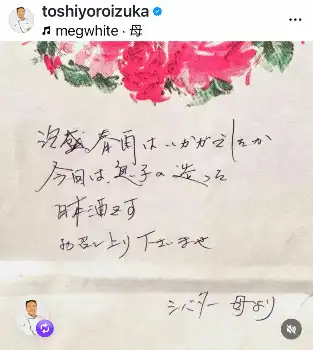 toshiyoroizuka
megwhite · 母
冷感、春雨はいかがでしたか
今回は、息子の造った
日本酒です
お召し上り下さいませ
シバター 母より